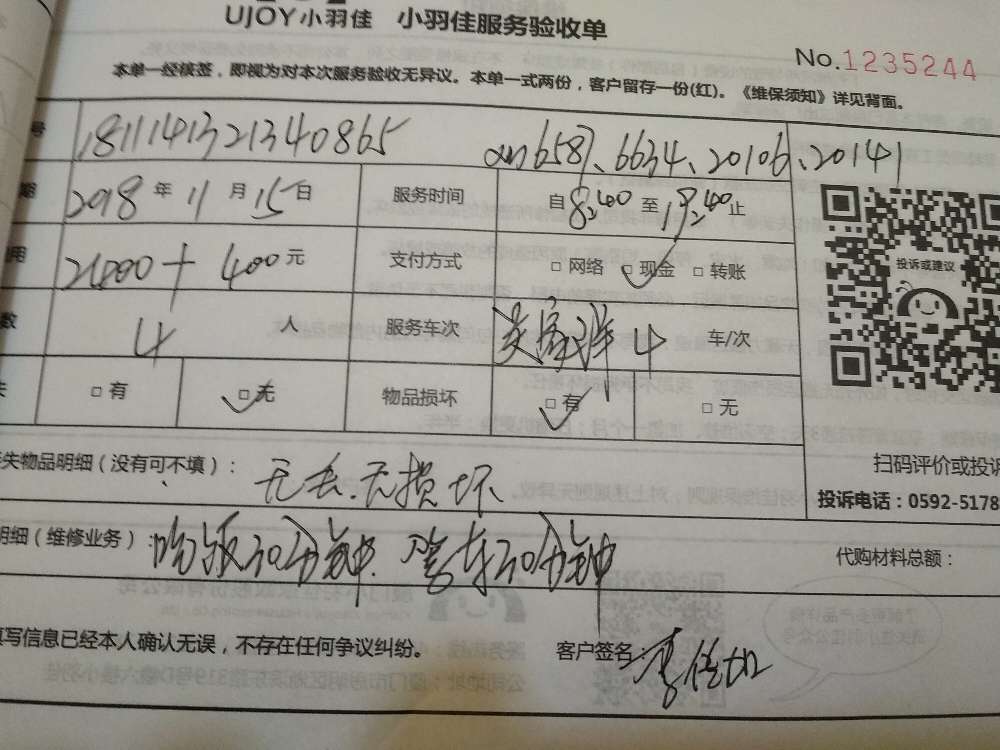 UJOY小羽佳 小羽佳服务验收单
No.1235244
本单一经核签，即视为对本次服务验收无异议。本单一式两份，客户留存一份(红)。《维保须知》详见背面。
号 1811141321340865 6587、6634、20106、20141
期 2018年11月15日 服务时间 自8:40至19:40止
用 2400+400元 支付方式 □网络 □现金 □转账
数 4人 服务车次 4 车/次
失 □有 □无 物品损坏 □有 □无
投诉或建议
扫码评价或投诉
投诉电话：0592-5178
失物品明细（没有可不填）： 无丢.无损坏
明细（维修业务）： 吃饭30分钟. 等车30分钟
代购材料总额：
填写信息已经本人确认无误，不存在任何争议纠纷。 客户签名：